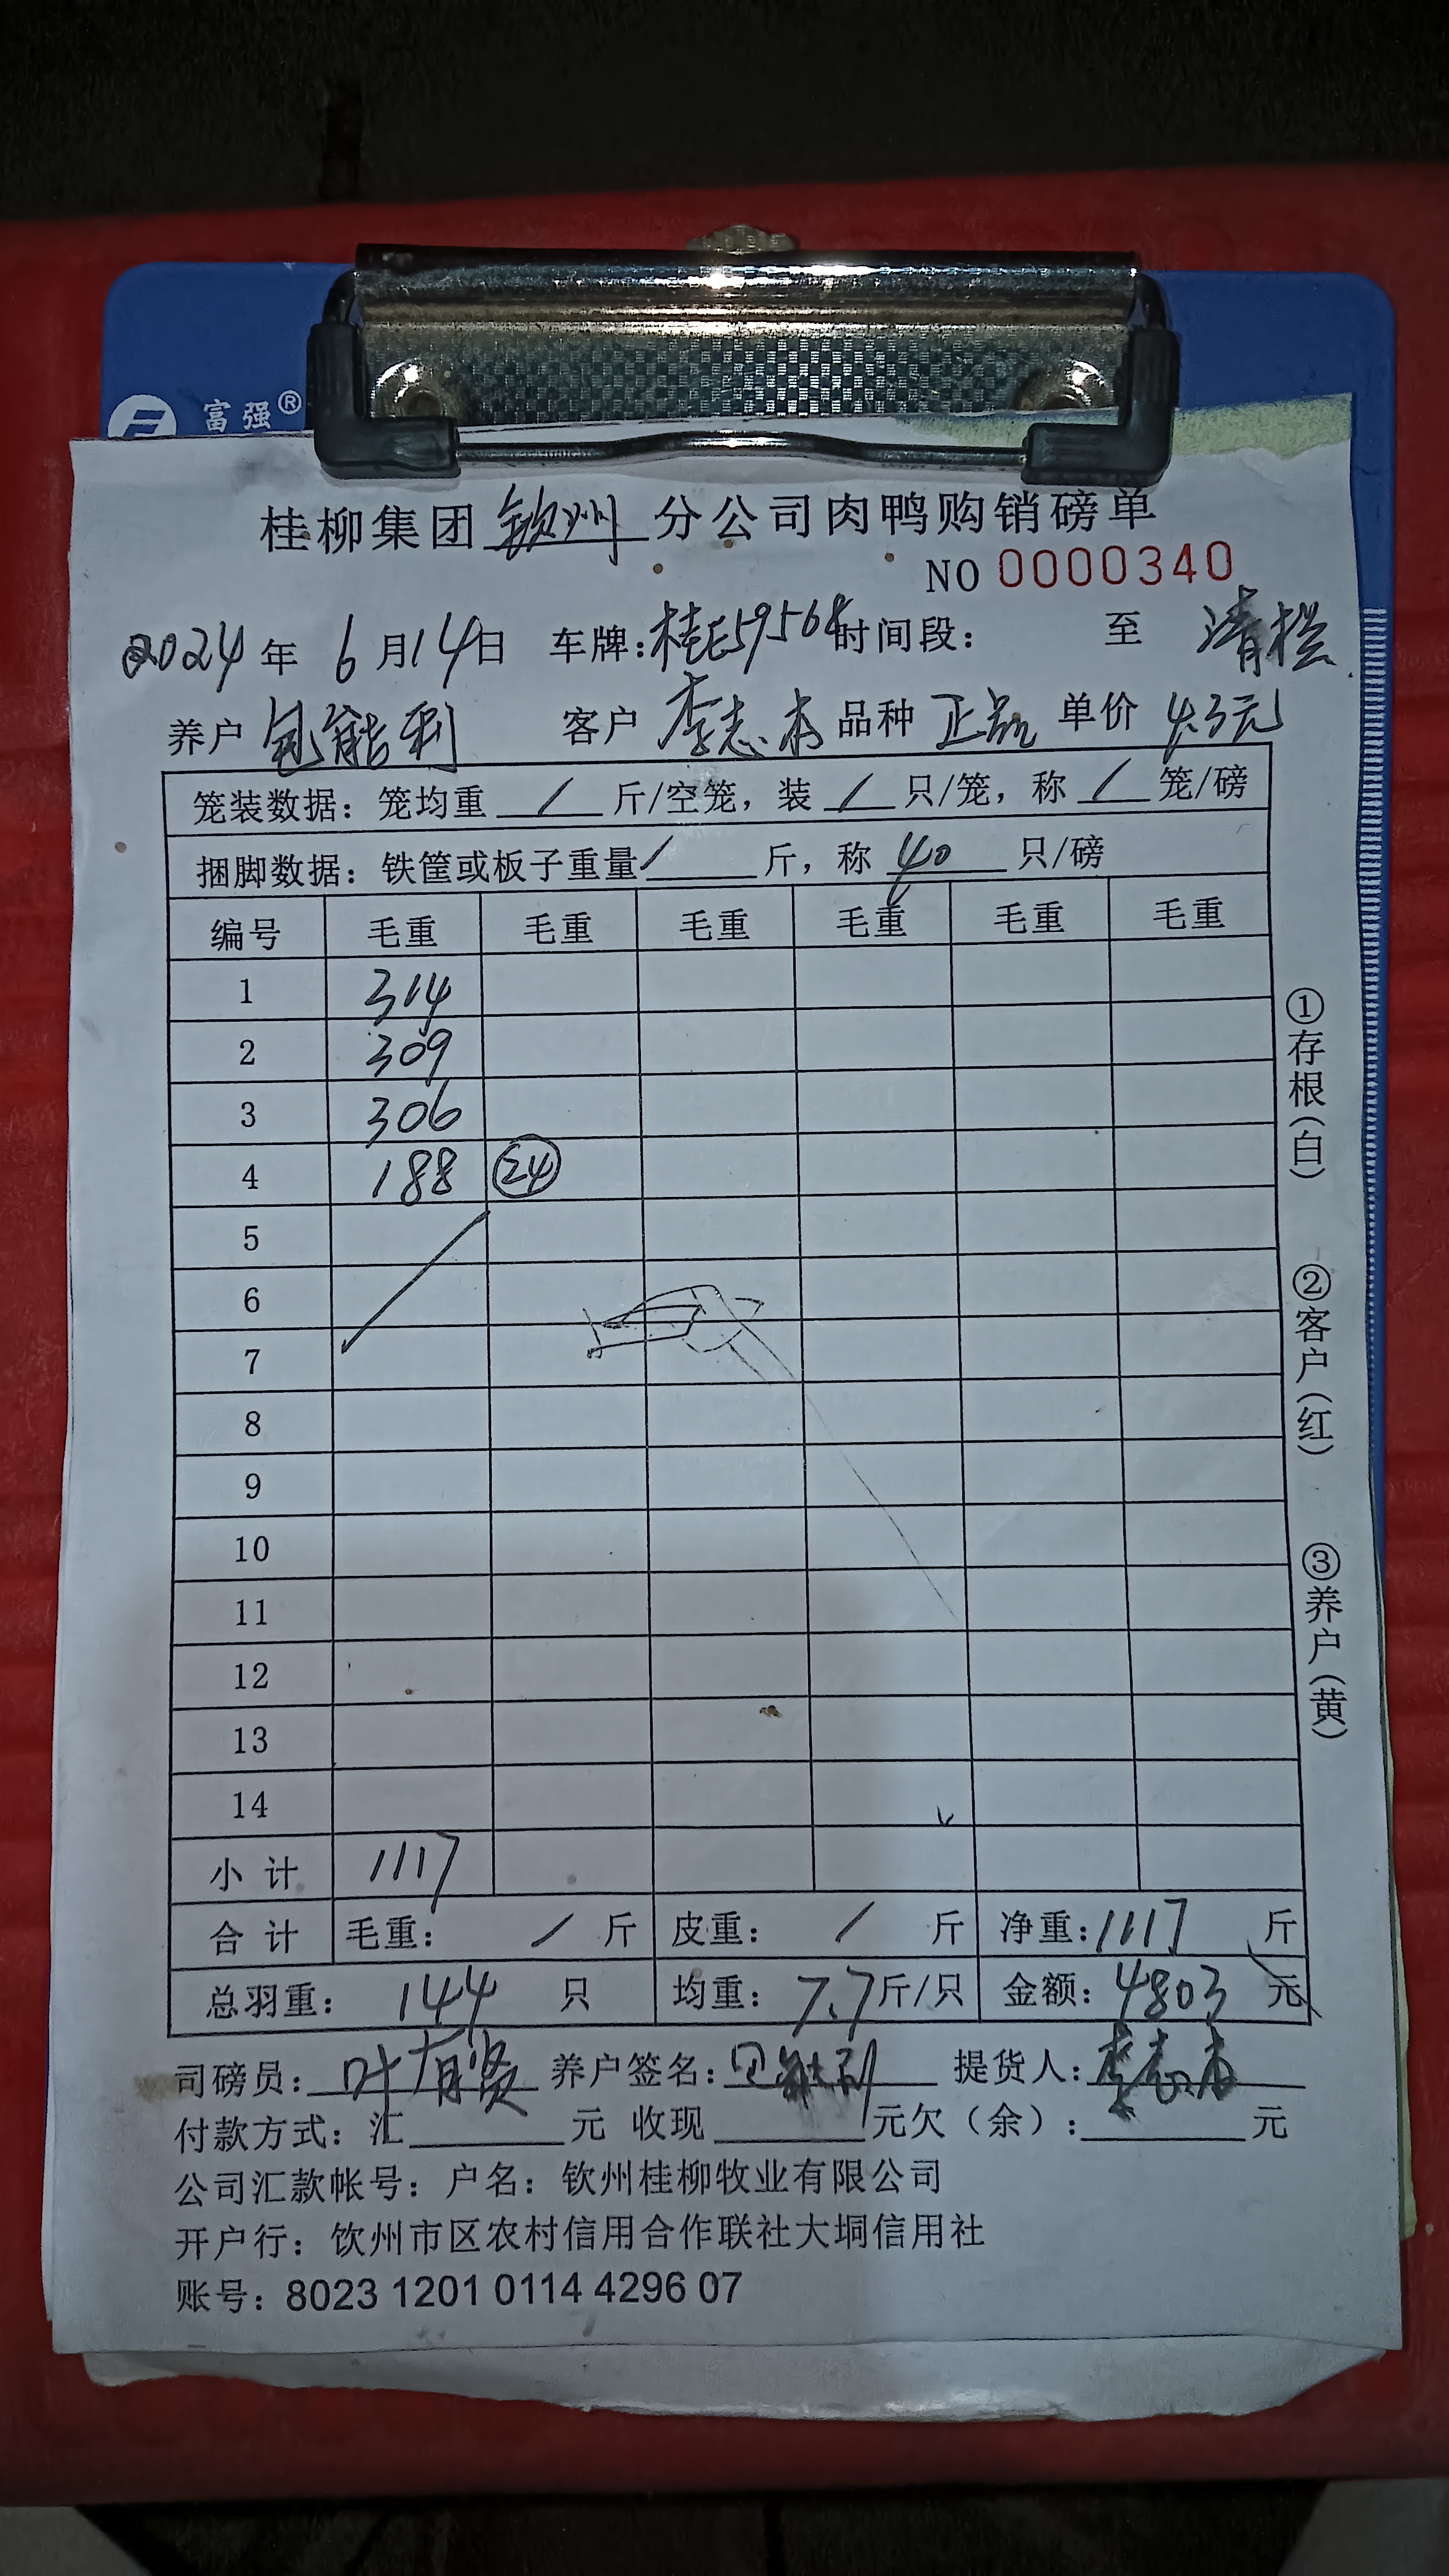 富强®
桂柳集团钦州分公司肉鸭购销磅单
NO 0000340
2024年 6月14日 车牌:桂E59568时间段: 至 清栏
养户 包能利 客户 李志杰 品种 正品 单价 4.3元
笼装数据：笼均重 / 斤/空笼，装 / 只/笼，称 / 笼/磅
捆脚数据：铁筐或板子重量 / 斤，称 40 只/磅
编号 毛重 毛重 毛重 毛重 毛重 毛重
1 314
2 309
3 306
4 188 24
5
6
7
8
9
10
11
12
13
14
小 计 1117
合 计 毛重： / 斤 皮重： / 斤 净重：1117 斤
总羽重： 144 只 均重：7.7斤/只 金额：4803 元
司磅员：叶有贤 养户签名：包能利 提货人：李志杰
付款方式：汇 元 收现 元欠（余）： 元
公司汇款帐号：户名：钦州桂柳牧业有限公司
开户行：饮州市区农村信用合作联社大垌信用社
账号：8023 1201 0114 4296 07
①存根(白)
②客户(红)
③养户(黄)